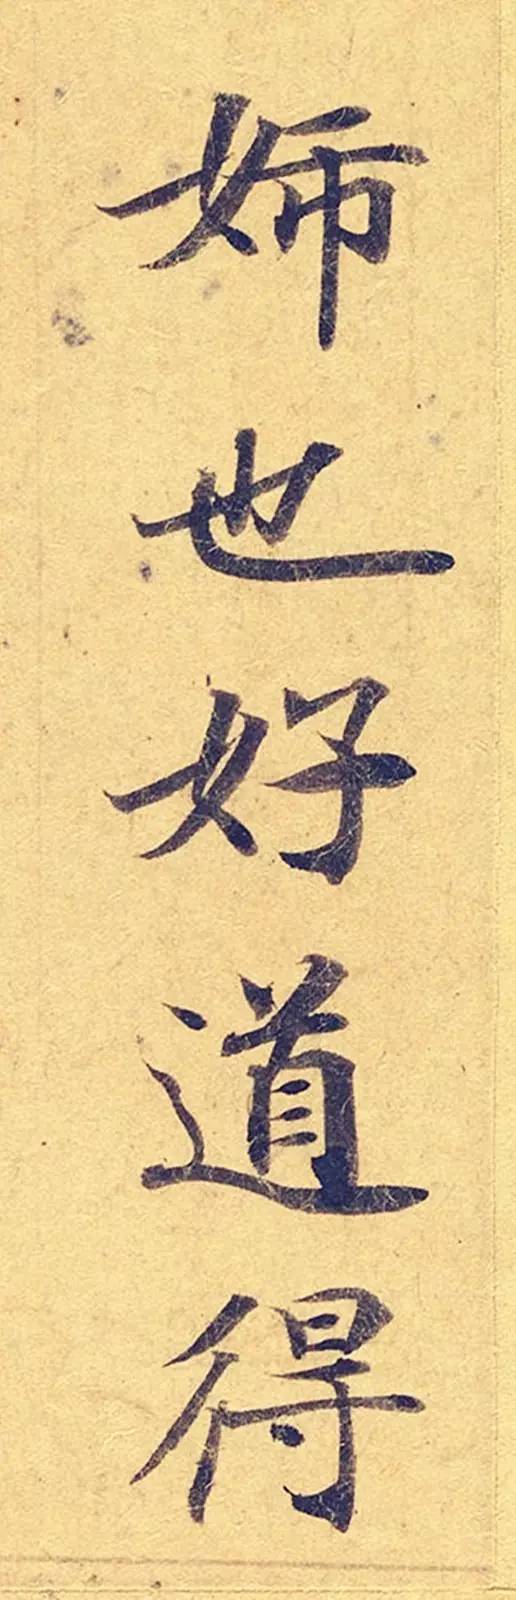 姉也好道得